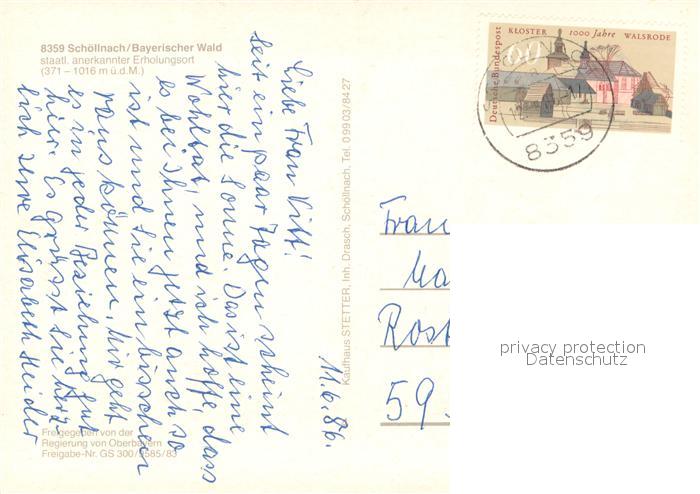 8359 Schöllnach/Bayerischer Wald
staatl. anerkannter Erholungsort
(371 – 1016 m ü.d.M.)
11.6.86.
Liebe Frau Vitt!
seit ein paar Tagen scheint
hier die Sonne. Das ist eine
Wohltat, und ich hoffe, dass
es bei Ihnen jetzt auch so
ist und Sie ein bisschen
raus können. Mir geht
es in jeder Beziehung gut
hier. Es grüsst Sie herz-
lich Ihre Elisabeth Heider
Freigegeben von der
Regierung von Oberbayern
Freigabe-Nr. GS 300/9585/83
Kaufhaus STETTER, Inh. Drasch, Schöllnach, Tel. 0 99 03/84 27
KLOSTER 1000 Jahre WALSRODE
Deutsche Bundespost
60
8359
Frau
Ma
Rost
59
privacy protection
Datenschutz